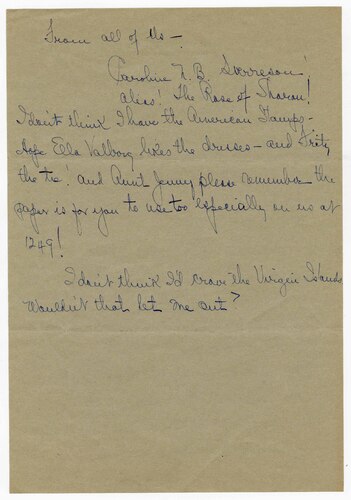 From all of us —
Caroline N. B. Sorreson!
alias! The Rose of Sharon!
I don't think I have the American Stamps —
Hope Ela Valborg likes the dresses — and Fritz
the tie. and Aunt Jenny please remember the
paper is for you to use too especially on us at
1249!
I don't think I'd crave the Virgin Islands
Wouldn't that let me out?